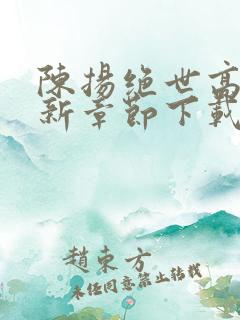 陳揚絶世高
新章節下載
趙東方
未经同意禁止转载